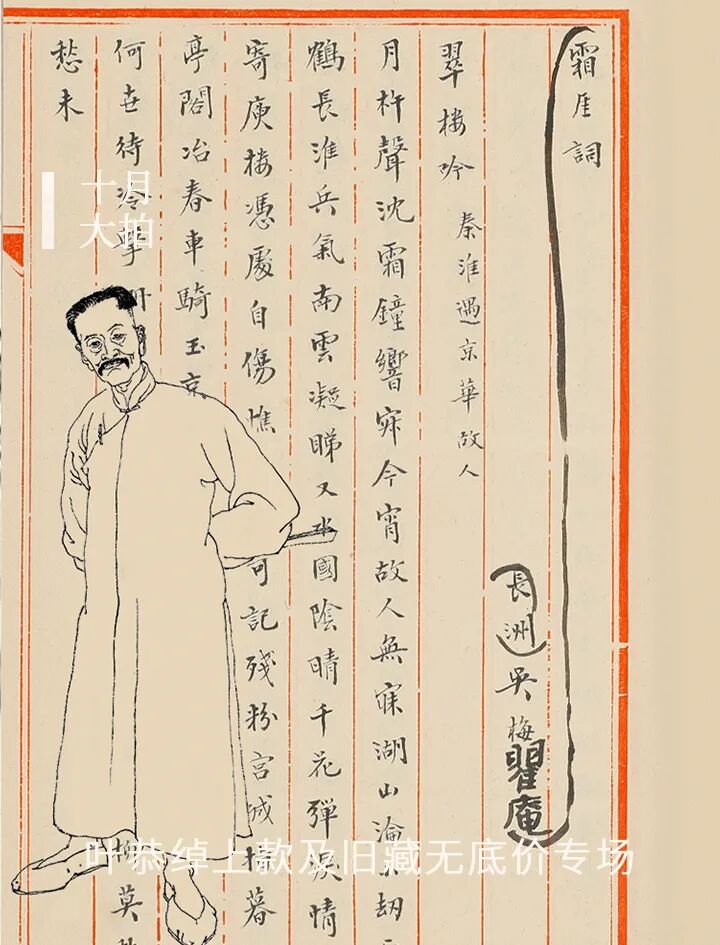 霜厓詞
長洲吳梅瞿庵
翠樓吟 秦淮遇京華故人
月杵聲沈霜鐘響寂今宵故人無寐湖山淪
鶴長淮兵氣南雲凝睇又水國陰晴千花彈淚情
寄庾樓憑處自傷憔 可記殘粉宮城 暮
亭閣冶春車騎玉京 莫
何世待冷
愁未
十月
大拍
叶恭绰上款及旧藏无底价专场